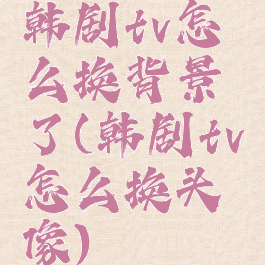 韩剧tv怎
么换背景
了(韩剧tv
怎么换头
像)